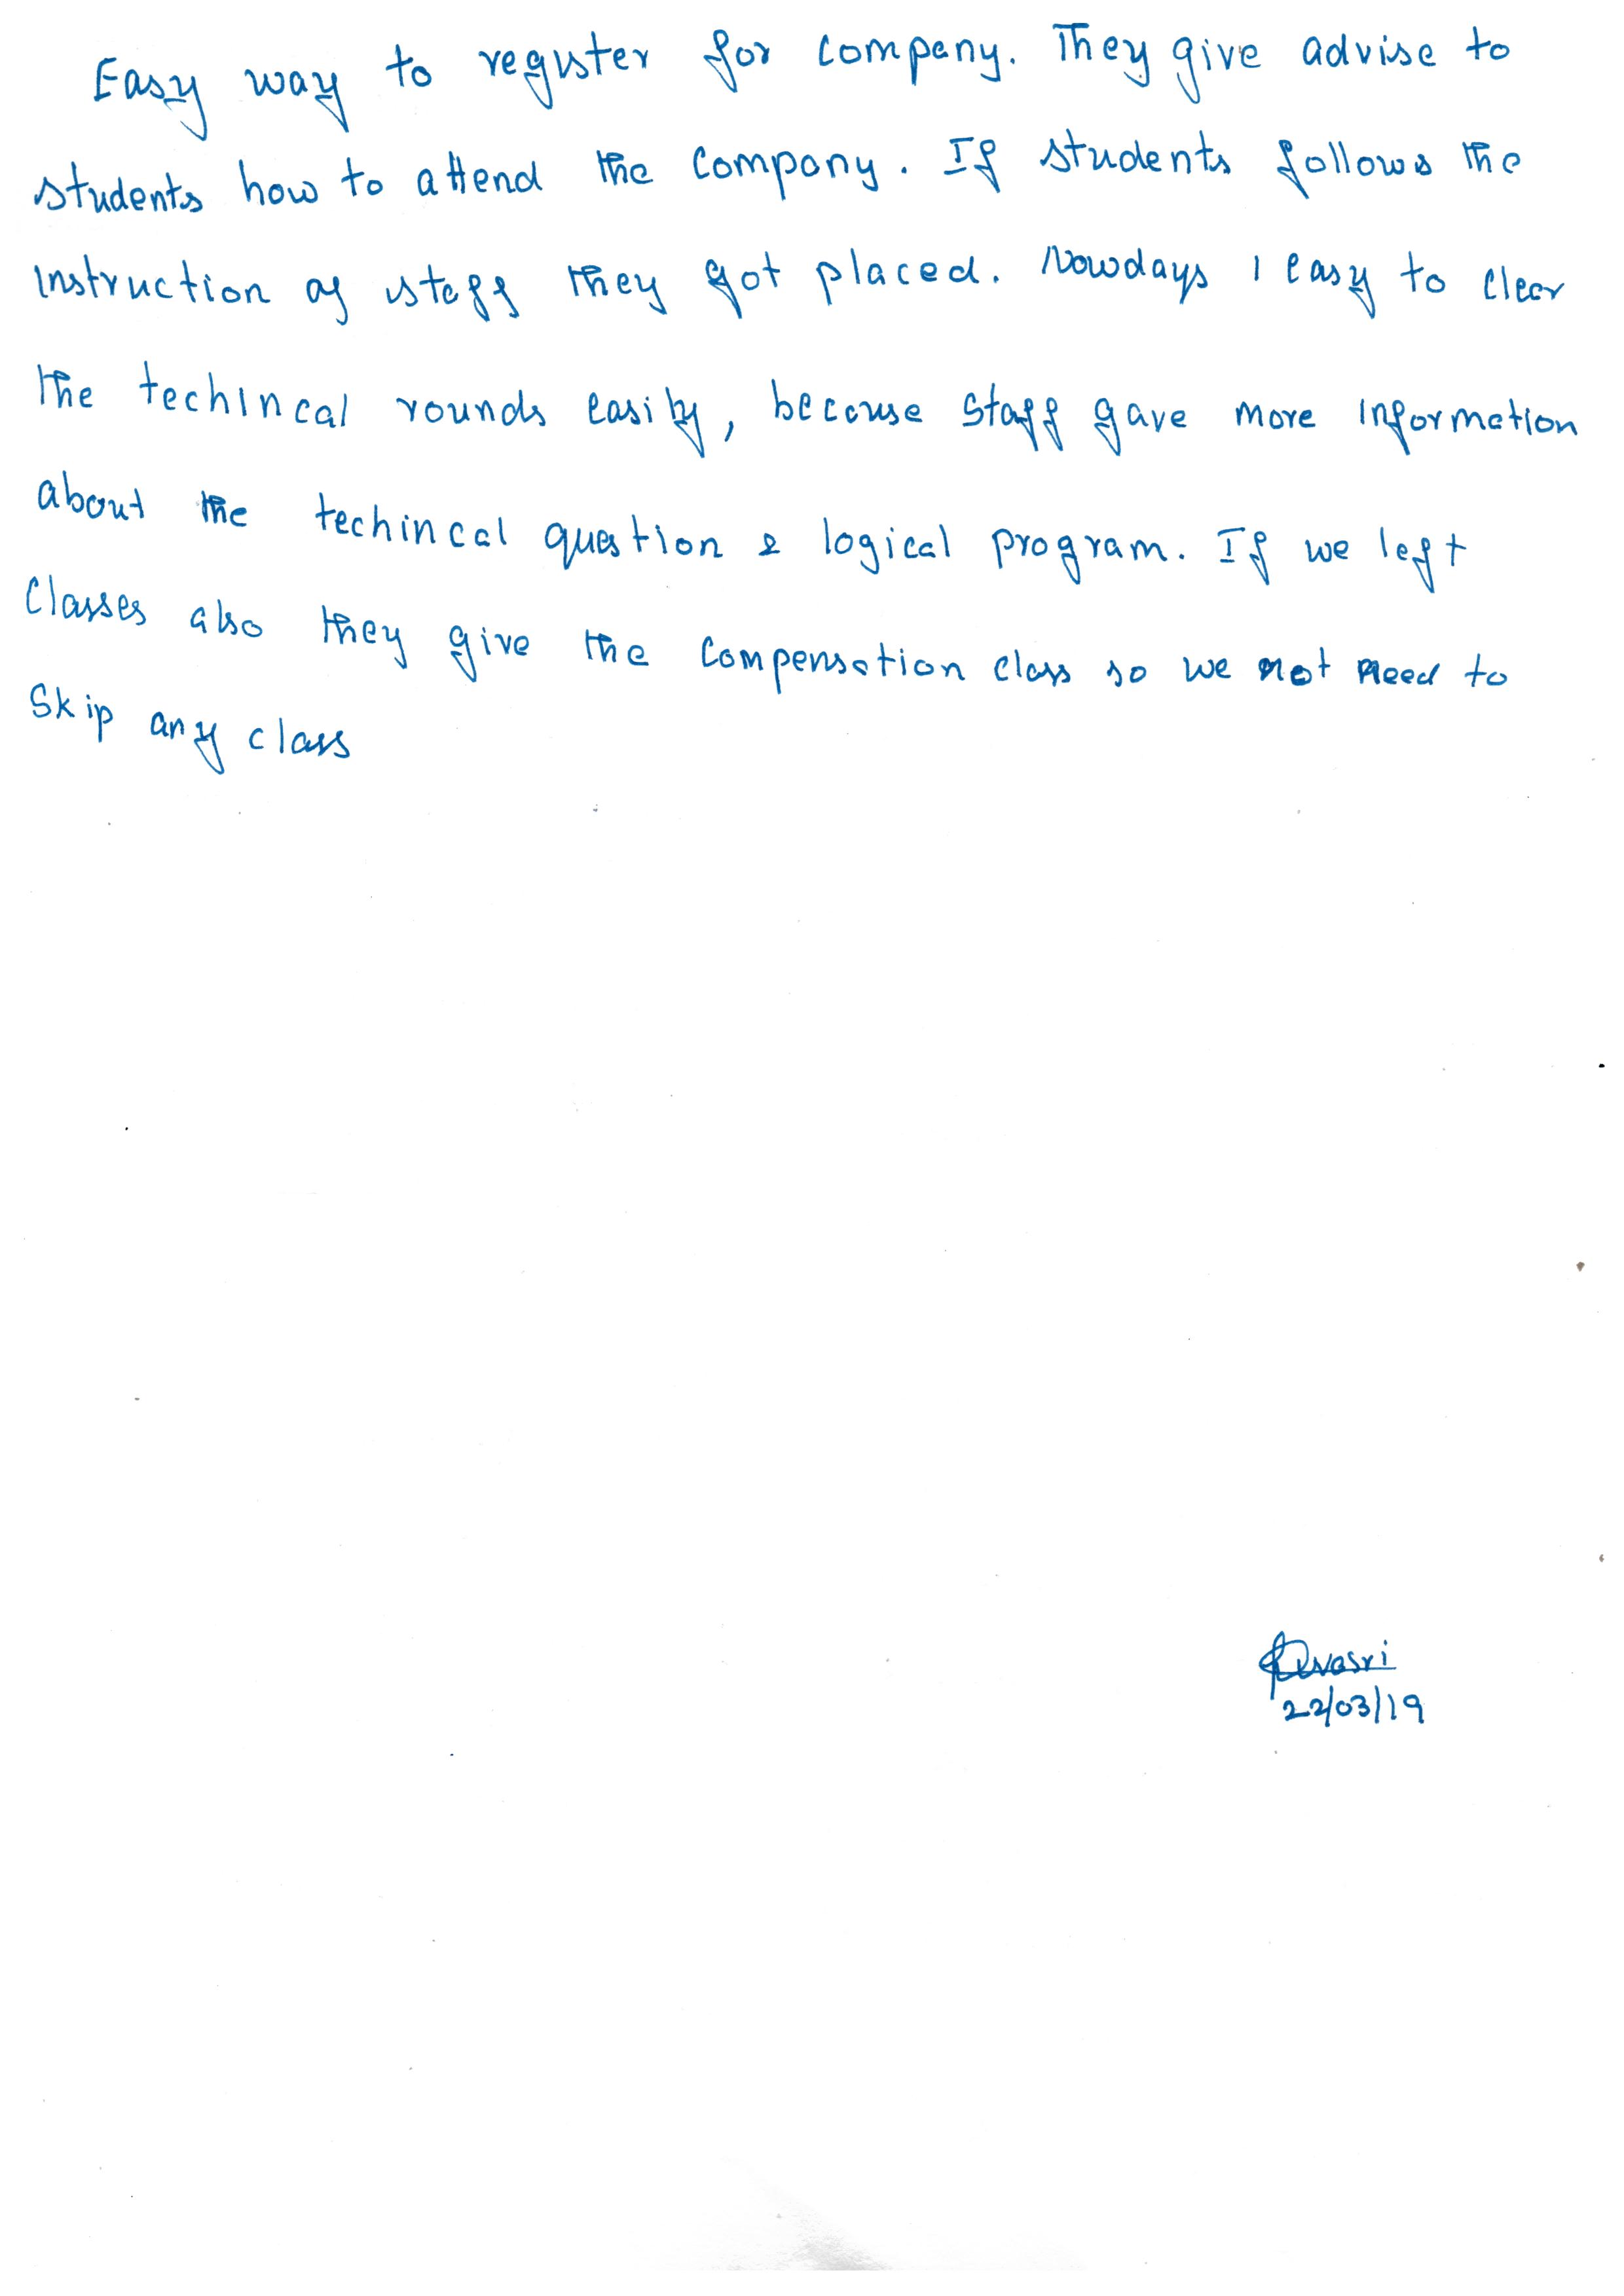 Easy way to register for company. They give advise to
students how to attend the company. If students follows the
instruction of staff they got placed. Nowdays I easy to clear
the techincal rounds easily, because staff gave more information
about the techincal question & logical program. If we left
classes also they give the compensation class so we not need to
skip any class
22/03/19